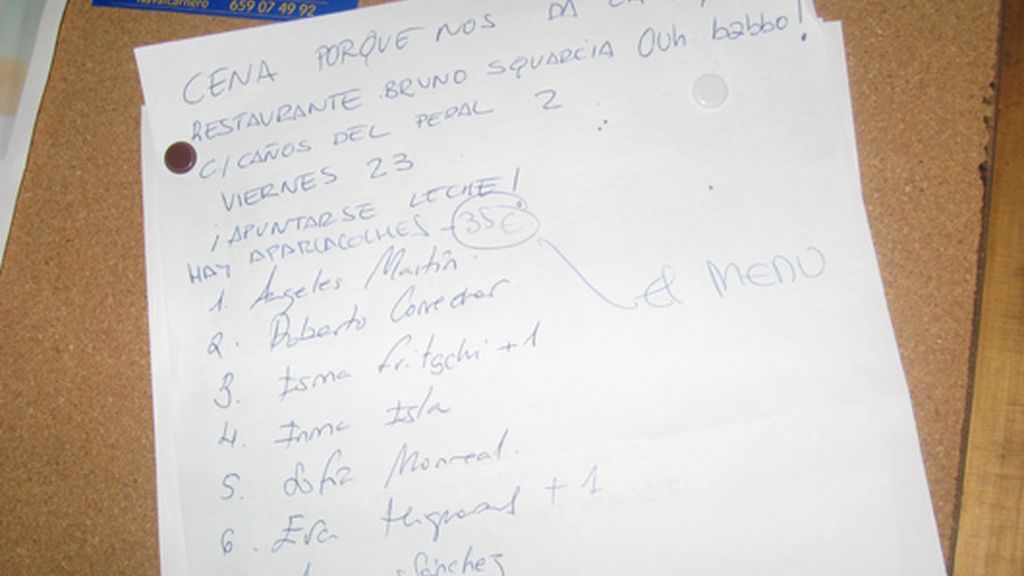 Navalcarnero 659 07 49 92
CENA PORQUE NOS DA LA
RESTAURANTE BRUNO SQUARCIA Ouh babbo!
C/ CAÑOS DEL PERAL 2
VIERNES 23
¡APUNTARSE LECHE!
HAY APARCACOCHES - 35€ el MENU
1. Angeles Martín
2. Roberto Corrector
3. Isma Fritschi + 1
4. Inma Isla
5. Sofía Monreal.
6. Eva + 1
Sánchez